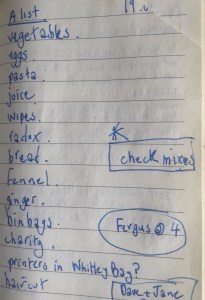 A list
19.
vegetables.
eggs.
pasta.
juice
wipes.
radox.
bread.
check mixes
fennel.
ginger.
bin bags.
Fergus @ 4
charity.
printers in Whitley Bay?
haircut
Dave + Jane